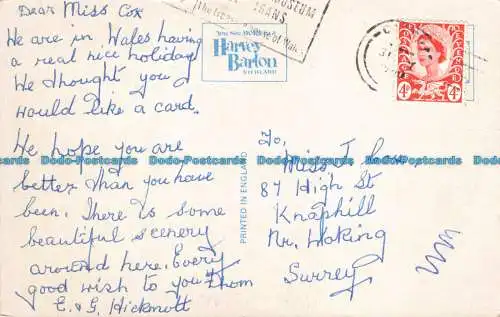 Dear Miss Cox
We are in Wales having
a real nice holiday
We thought you
would like a card.
We hope you are
better than you have
been. There is some
beautiful scenery
around here. Every
good wish to you from
E. & G. Hickmott
MUSEUM
Harvey
Barton
PRINTED IN ENGLAND
4d
4d
To,
Miss J Cox.
87 High St
Knaphill
Nr. Woking
Surrey
Dado-Postcards Dado-Postcards Dado-Postcards Dado-Postcards